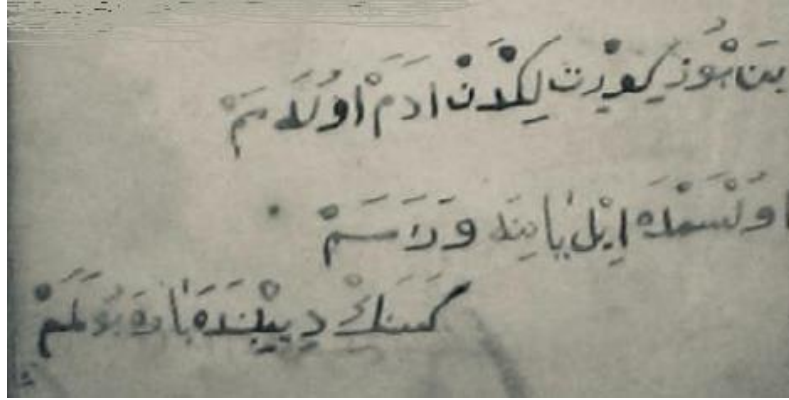 بَن بُوْز كوْرت لِكْدَنْ اَدَمْ اوُلَامَمْ
اوُلْسَمْدَه اِيْل يَا بِنَه وَرَاسَمْ
كَمسَنكْ دِيبِيْنْدَه يَارَه بوُلَمَمْ